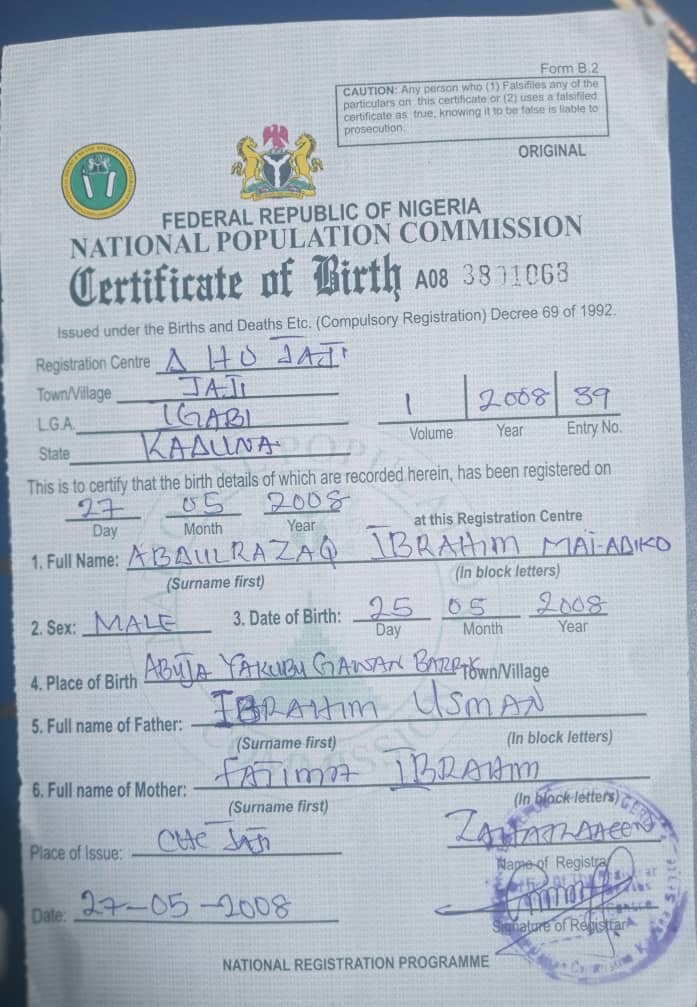 Form B.2
CAUTION: Any person who (1) Falsifiies any of the
particulars on this certificate or (2) uses a falsifiled
certificate as true, knowing it to be false is liable to
prosecution.
ORIGINAL
FEDERAL REPUBLIC OF NIGERIA
NATIONAL POPULATION COMMISSION
Certificate of Birth A08
Issued under the Births and Deaths Etc. (Compulsory Registration) Decree 69 of 1992.
Registration Centre JAJI
Town/Village JAJI
L.G.A. IGABI
1 2008 39
Volume Year Entry No.
State KADUNA
This is to certify that the birth details of which are recorded herein, has been registered on
27 05 2008 at this Registration Centre
Day Month Year
1. Full Name: ABDULRAZAQ IBRAHIM MAI-ADIKO
(Surname first) (In block letters)
2. Sex: MALE 3. Date of Birth: 25 05 2008
Day Month Year
4. Place of Birth ABUJA YAKUBU GAWAN Town/Village
5. Full name of Father: IBRAHIM USMAN
(Surname first) (In block letters)
6. Full name of Mother: FATIMA IBRAHIM
(Surname first) (In block letters)
Place of Issue: JAJI
Name of Registrar
Date: 27-05-2008
Signature of Registrar
NATIONAL REGISTRATION PROGRAMME